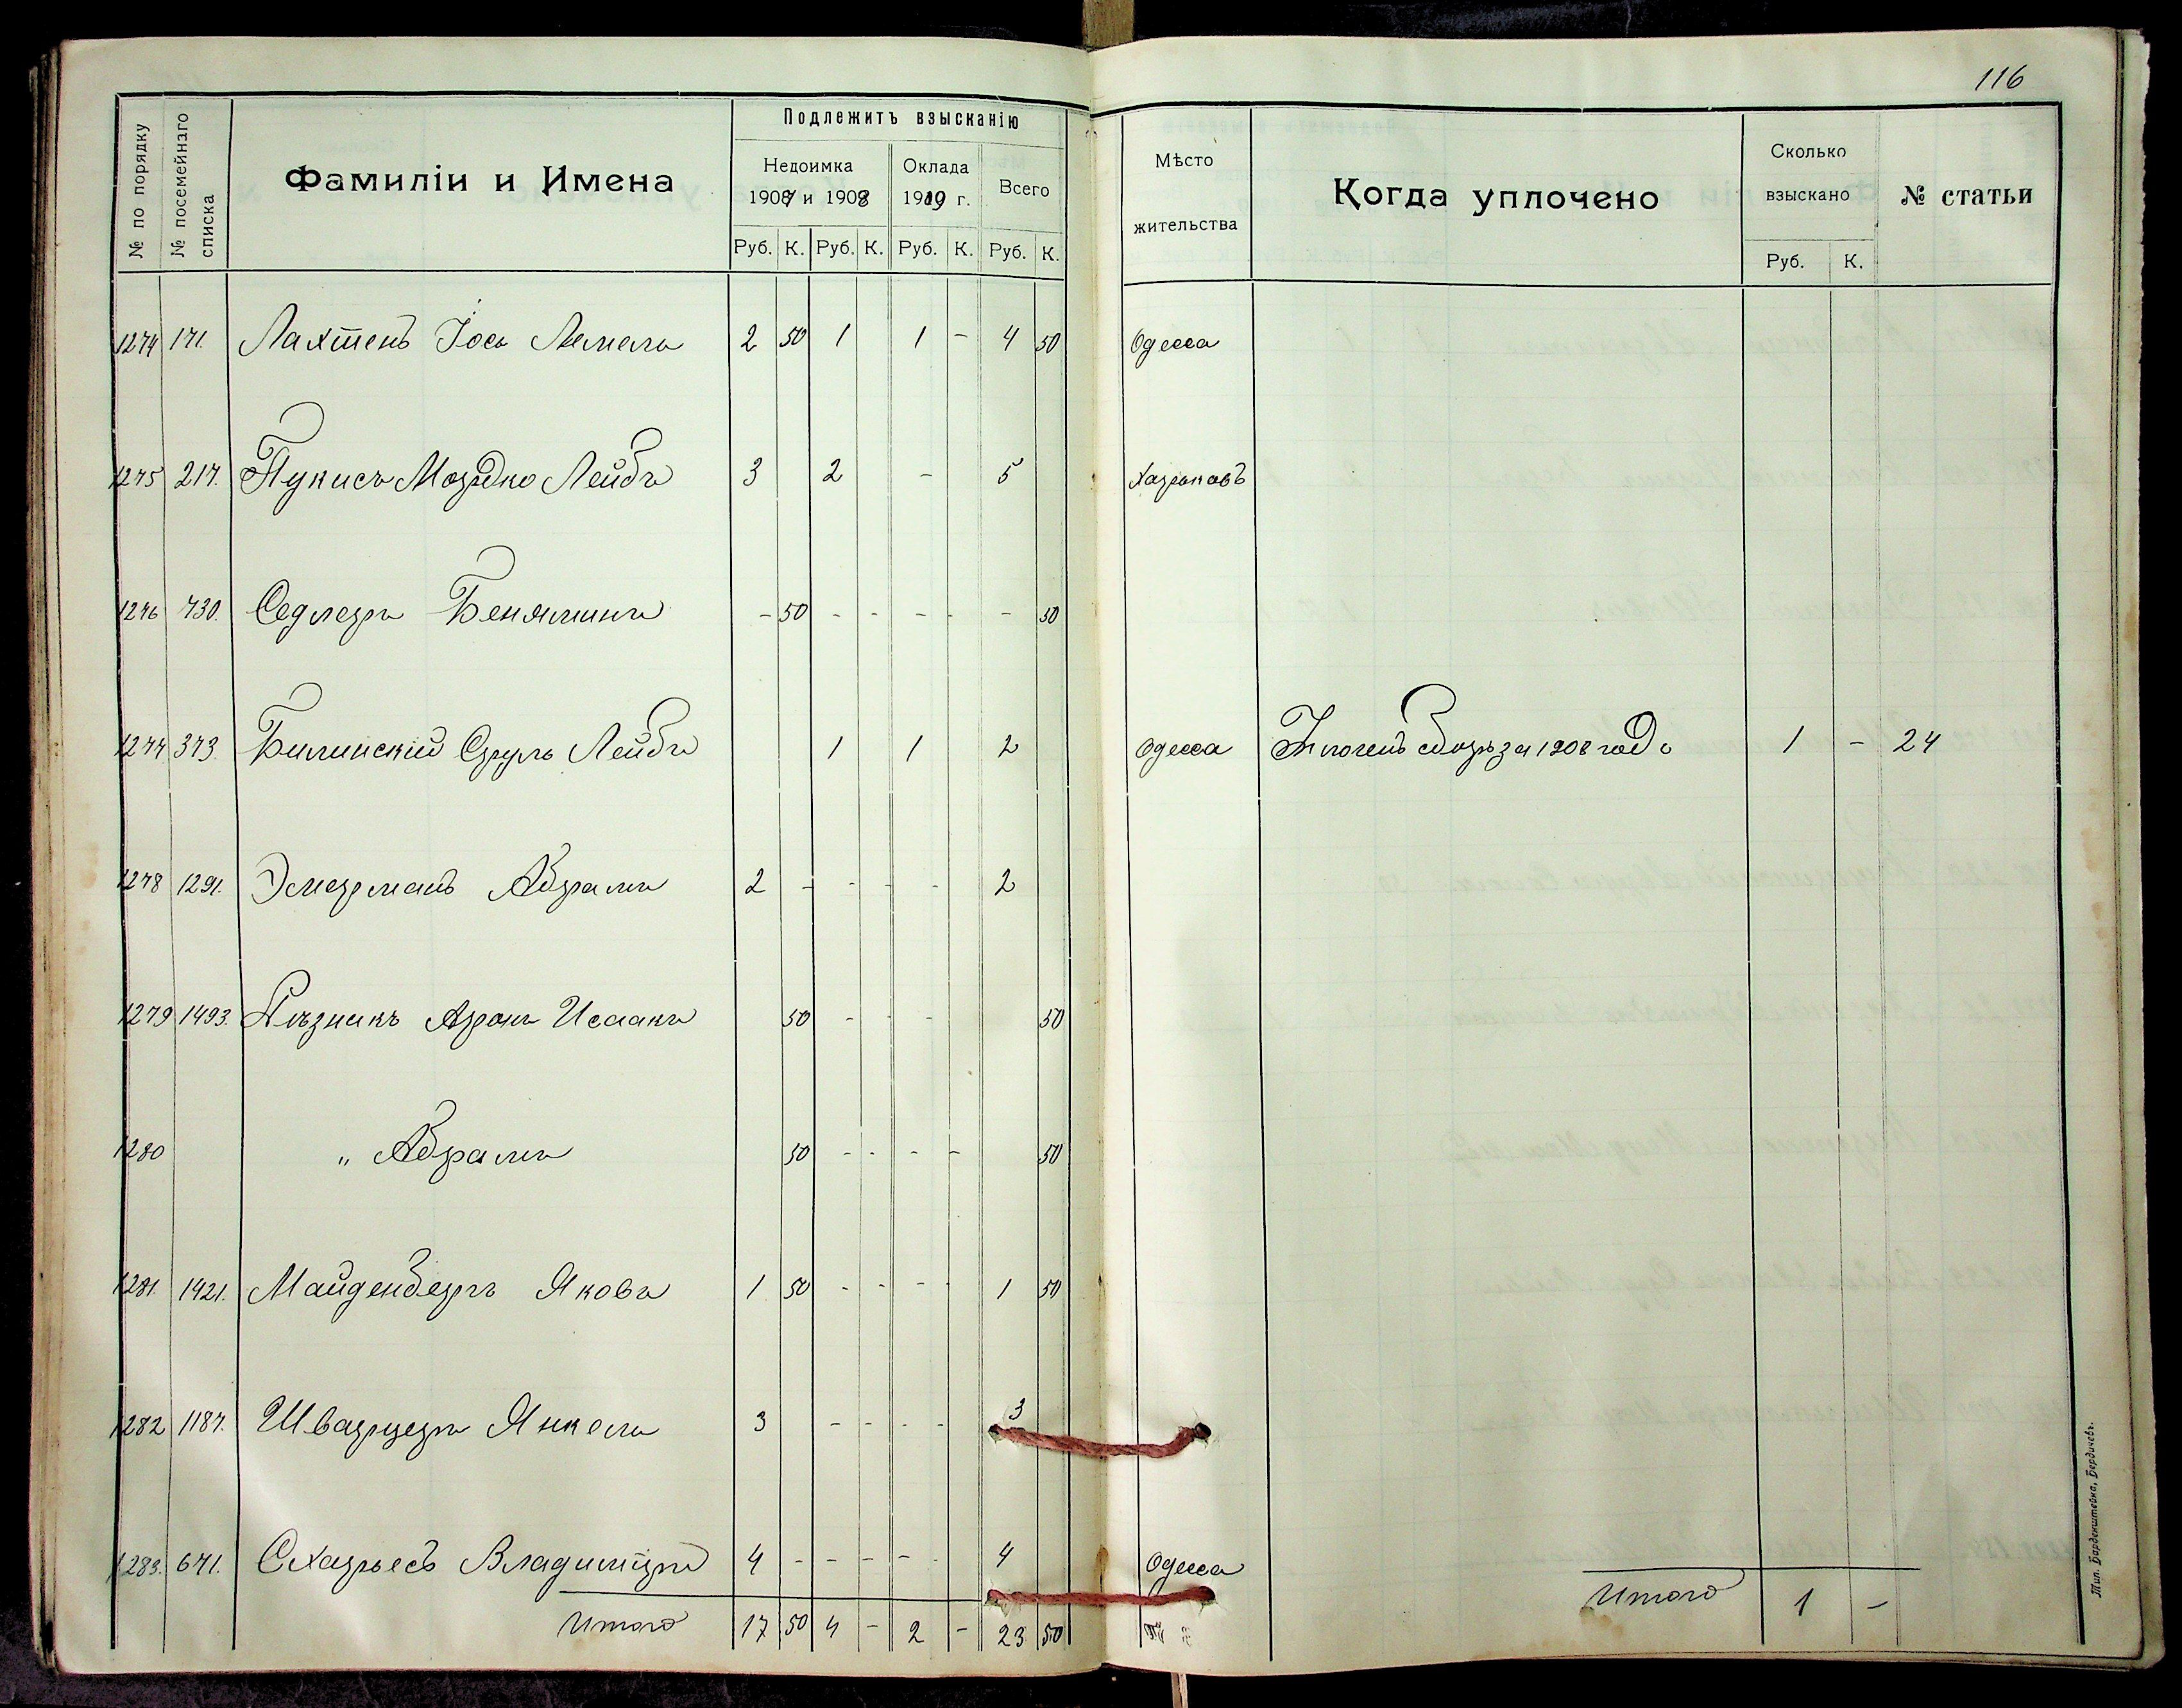 116
№ по порядку
№ посемейнаго списка
Фамиліи и Имена
Подлежитъ взысканію
Недоимка
1907 и 1908
Оклада
1909 г.
Всего
Руб. К. Руб. К. Руб. К. Руб. К.
Мѣсто
жительства
Когда уплочено
Сколько
взыскано
Руб. К.
№ статьи
1274 171. Лахтенъ Іось Лемель 2 50 1 1 - 4 50 Одесса
1275 217. Пукисъ Мордко Лейбъ 3 2 - 5 Харьковъ
1276 730. Седлеръ Беняминъ - 50 - - - - - 50
1277 373. Билинскій Сруль Лейбъ 1 1 2 Одесса сборъ за 1908 годъ 1 - 24
1278 1291. Эмерманъ Абрамъ 2 - - - - 2
1279 1493. Рѣзникъ Аронъ Исаакъ 50 - - - 50
1280 " Абрамъ 50 - - - - 50
1281. 1421. Майденбергъ Яковъ 1 50 - - - - 1 50
1282 1187. Шварцеръ Янкель 3 - - - - 3
1283. 671. Схарьесъ Владиміръ 4 - - - - - 4 Одесса
Итого 17 50 4 - 2 - 23 50
Итого 1 -
Тип. Барденштейна, Бердичевъ.